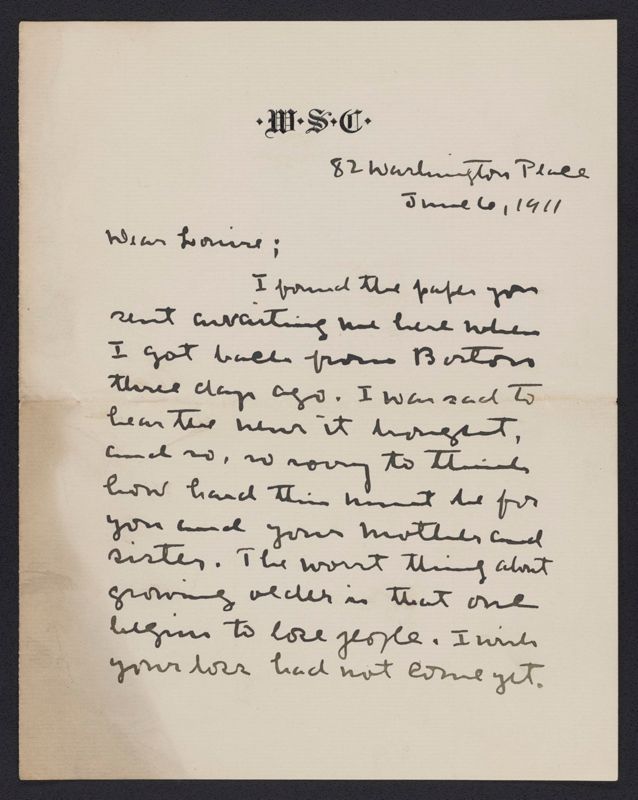 ·W·S·C·
82 Washington Place
June 6, 1911
Dear Louise;
I found the paper you
sent awaiting me here when
I got back from Boston
three days ago. I was sad to
hear the news it brought,
and so, so sorry to think
how hard this must be for
you and your mother and
sister. The worst thing about
growing older is that one
begins to lose people. I wish
your loss had not come yet.